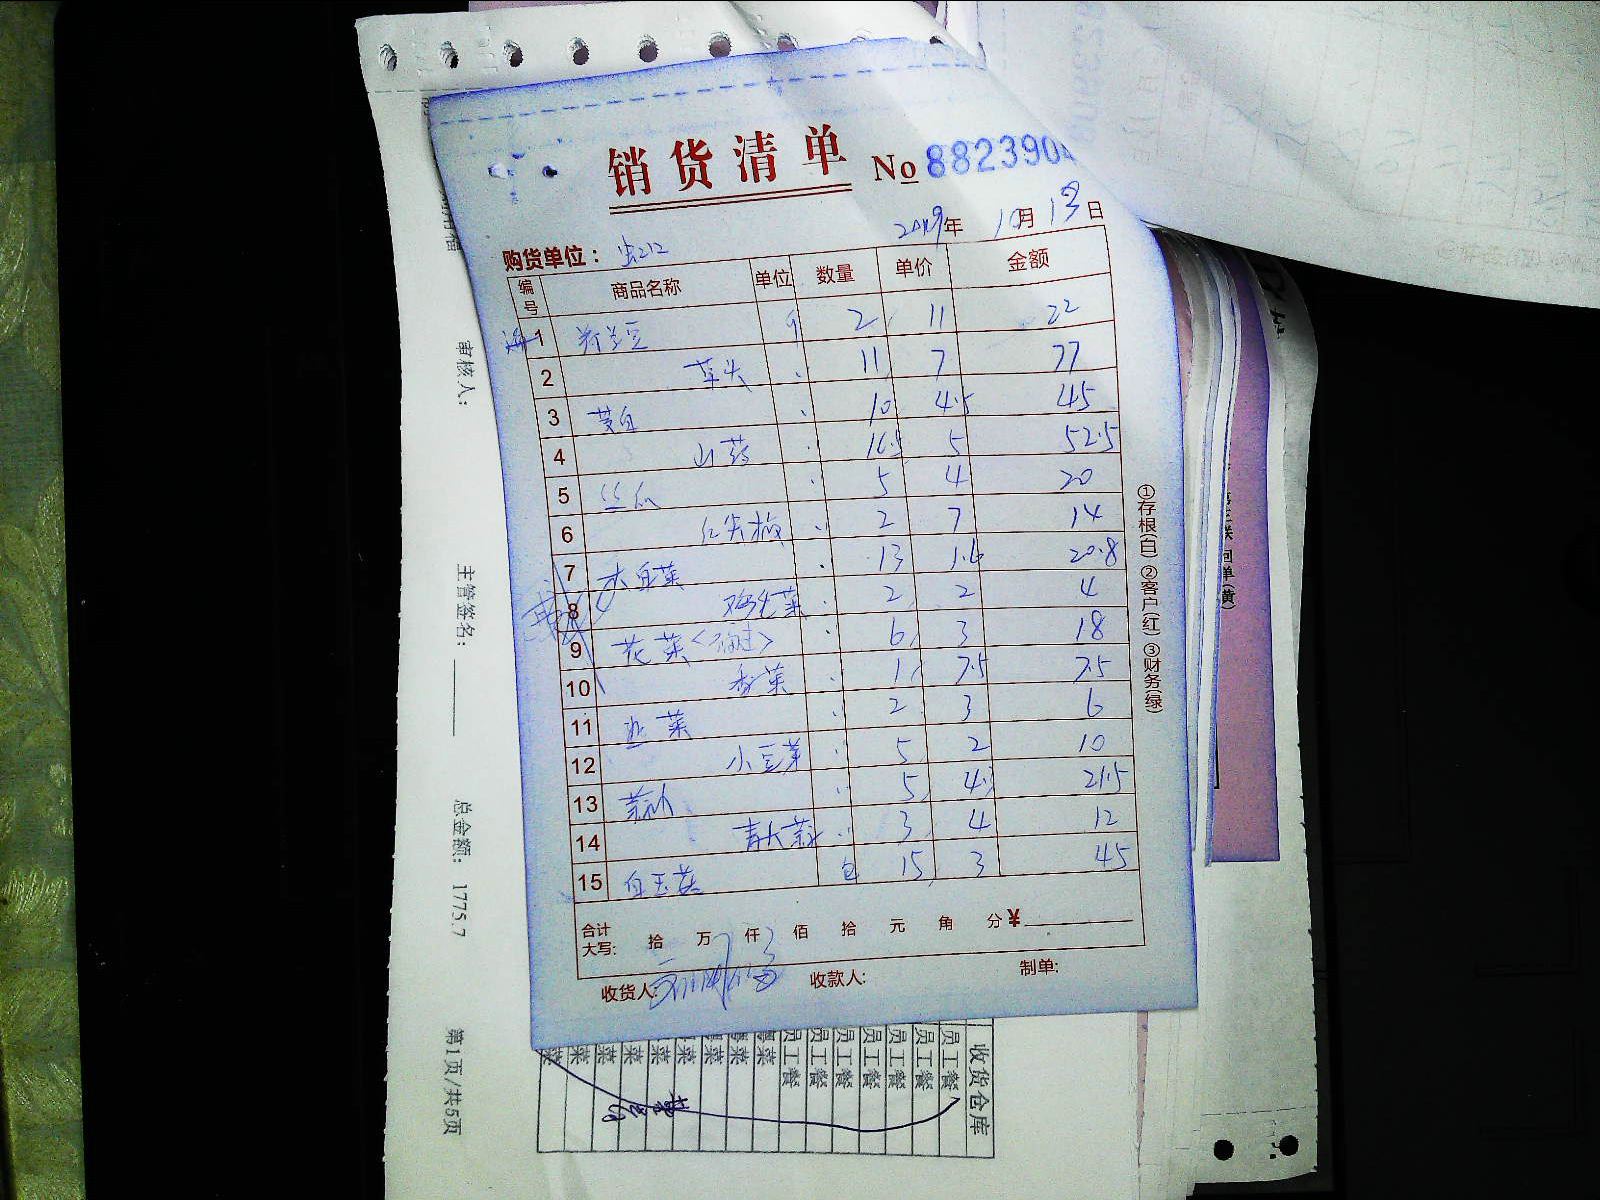 销货清单 No 882390
2019年 10月 13日
购货单位：虫212
编号 商品名称 单位 数量 单价 金额
1 荷兰豆 斤 2 11 22
2 草头 11 7 77
3 茭白 10 4.5 45
4 山药 5 52.5
5 丝瓜 5 4 20
6 红尖椒 2 7 14
7 大白菜 13 1.6 20.8
8 鸡毛菜 2 2 4
9 花菜 6 3 18
10 香菜 1 7.5 7.5
11 韭菜 2 3 6
12 小豆芽 5 2 10
13 5 4.3 21.5
14 青大蒜 3 4 12
15 白玉菇 包 15 3 45
合计大写: 拾 万 仟 佰 拾 元 角 分 ¥
收货人: 收款人: 制单:
①存根(白) ②客户(红) ③财务(绿)
审核人:
主管签名:
总金额: 1775.7
第1页/共5页
收货仓库
员工餐
员工餐
员工餐
员工餐
员工餐
员工餐
员工餐